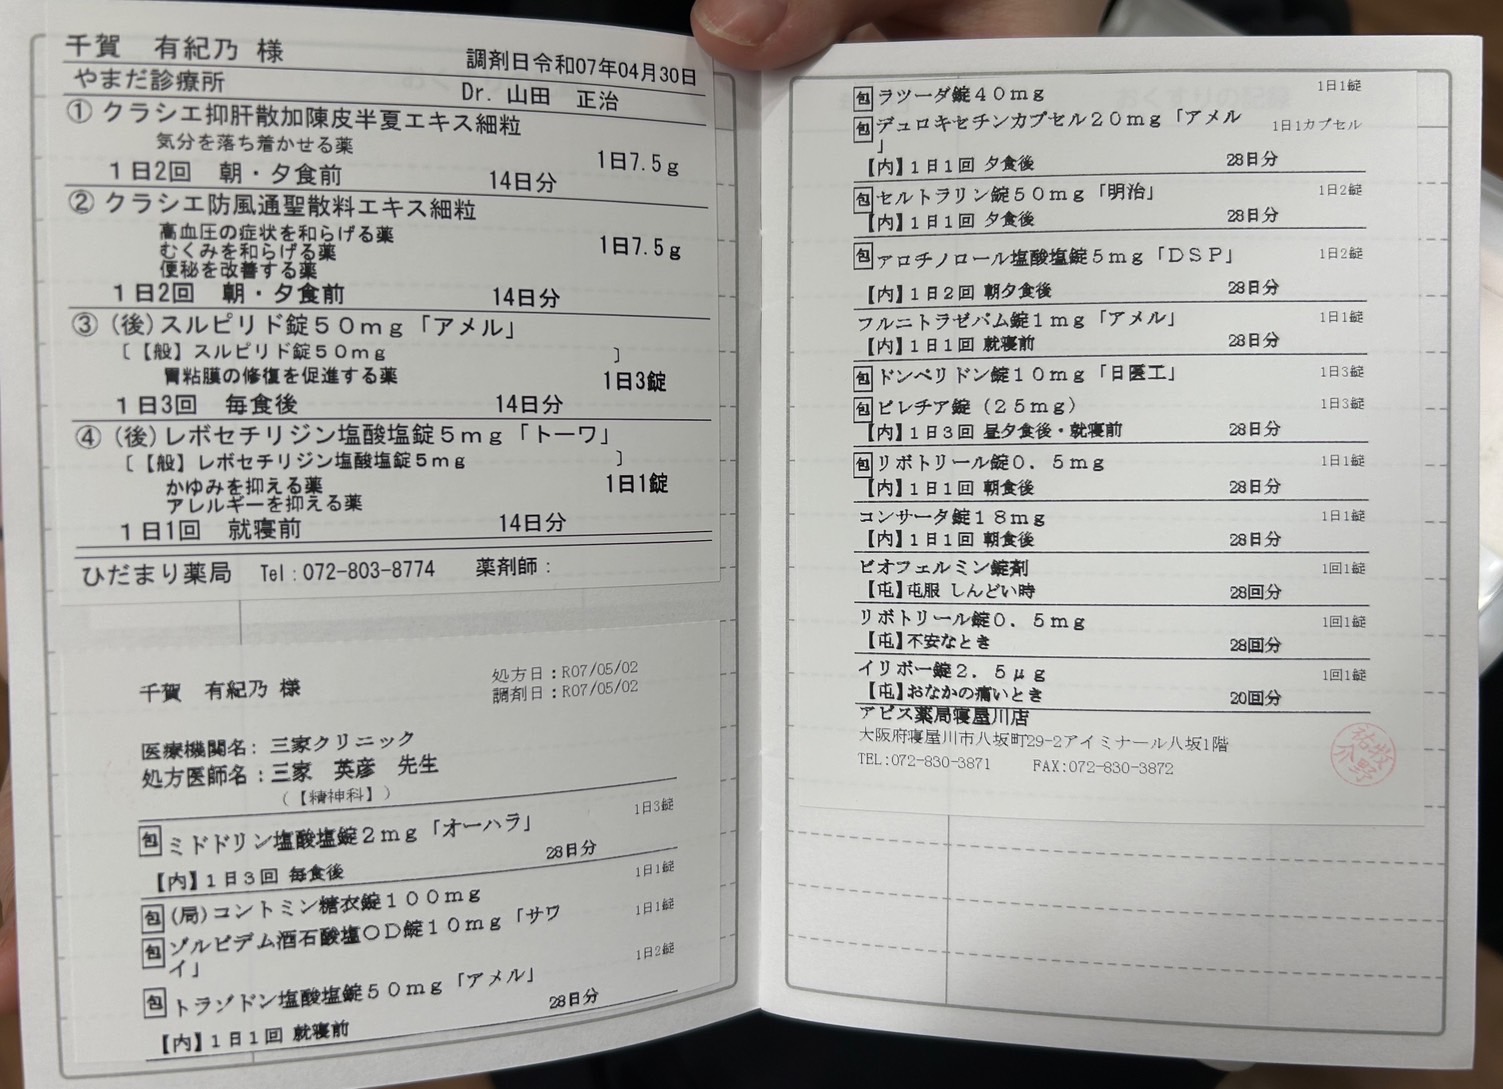 千賀　有紀乃 様
調剤日令和07年04月30日
やまだ診療所
Dr. 山田　正治
① クラシエ抑肝散加陳皮半夏エキス細粒
気分を落ち着かせる薬
1日7.5g
1日2回　朝・夕食前　14日分
② クラシエ防風通聖散料エキス細粒
高血圧の症状を和らげる薬
むくみを和らげる薬
1日7.5g
便秘を改善する薬
1日2回　朝・夕食前　14日分
③ (後)スルピリド錠50mg「アメル」
〔【般】スルピリド錠50mg　〕
胃粘膜の修復を促進する薬　1日3錠
1日3回　毎食後　14日分
④ (後)レボセチリジン塩酸塩錠5mg「トーワ」
〔【般】レボセチリジン塩酸塩錠5mg　〕
かゆみを抑える薬　1日1錠
アレルギーを抑える薬
1日1回　就寝前　14日分
ひだまり薬局　Tel:072-803-8774　薬剤師:
処方日：R07/05/02
千賀　有紀乃 様
調剤日：R07/05/02
医療機関名：三家クリニック
処方医師名：三家　英彦　先生
（【精神科】）
包 ミドドリン塩酸塩錠2mg「オーハラ」　1日3錠
【内】1日3回 毎食後　28日分
包 (局)コントミン糖衣錠100mg　1日1錠
包 ゾルピデム酒石酸塩OD錠10mg「サワ　1日1錠
イ」
包 トラゾドン塩酸塩錠50mg「アメル」　1日2錠
【内】1日1回 就寝前　28日分
包 ラツーダ錠40mg　1日1錠
包 デュロキセチンカプセル20mg「アメル　1日1カプセル
」
【内】1日1回 夕食後　28日分
包 セルトラリン錠50mg「明治」　1日2錠
【内】1日1回 夕食後　28日分
包 アロチノロール塩酸塩錠5mg「DSP」　1日2錠
【内】1日2回 朝夕食後　28日分
フルニトラゼパム錠1mg「アメル」　1日1錠
【内】1日1回 就寝前　28日分
包 ドンペリドン錠10mg「日医工」　1日3錠
包 ピレチア錠（25mg）　1日3錠
【内】1日3回 昼夕食後・就寝前　28日分
包 リボトリール錠0．5mg　1日1錠
【内】1日1回 朝食後　28日分
コンサータ錠18mg　1日1錠
【内】1日1回 朝食後　28日分
ビオフェルミン錠剤　1回1錠
【屯】屯服 しんどい時　28回分
リボトリール錠0．5mg　1回1錠
【屯】不安なとき　28回分
イリボー錠2．5μg　1回1錠
【屯】おなかの痛いとき　20回分
アピス薬局寝屋川店
大阪府寝屋川市八坂町29-2アイミナール八坂1階
TEL:072-830-3871　FAX:072-830-3872